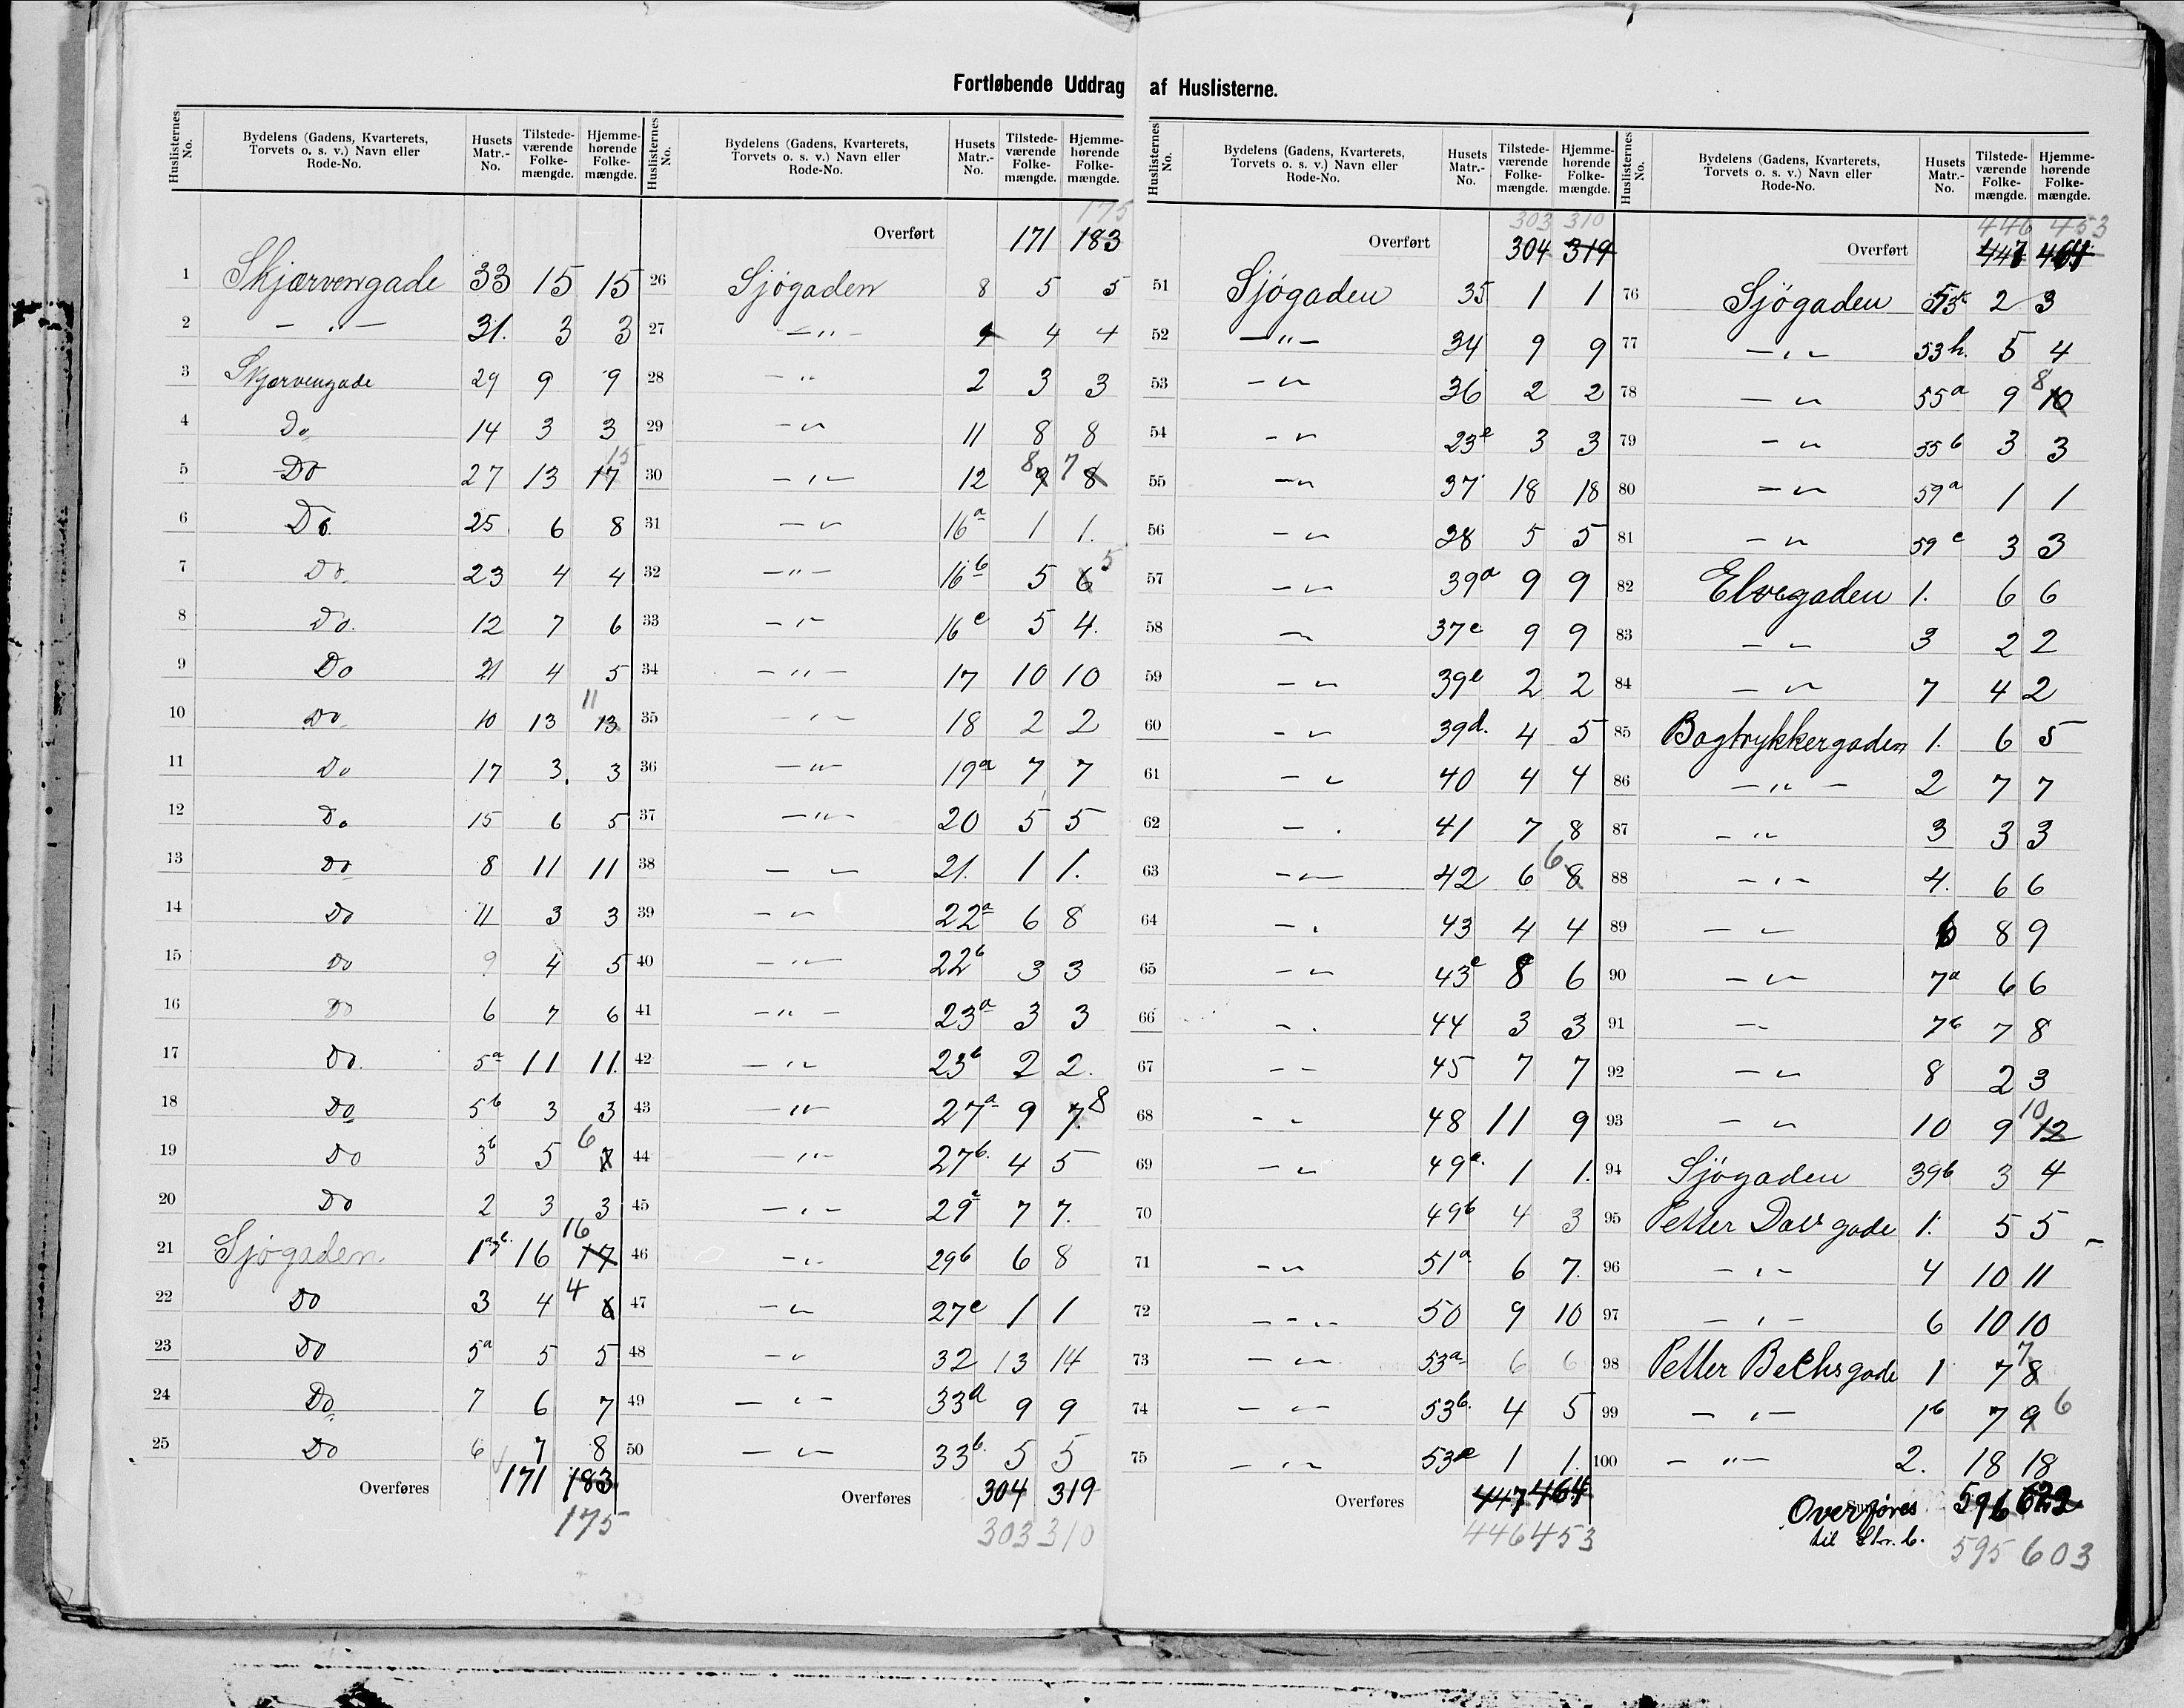 Fortløbende Uddrag af Huslisterne.
Huslisternes No. Bydelens (Gadens, Kvarterets, Torvets o. s. v.) Navn eller Rode-No. Husets Matr.-No. Tilstedeværende Folkemængde. Hjemmehørende Folkemængde.
1 Skjærvengade 33 15 15
2 — „ — 31. 3 3
3 Skjærvengade 29 9 9
4 Do 14 3 3
5 Do 27 13 17 15
6 Do. 25 6 8
7 Do. 23 4 4
8 Do. 12 7 6
9 Do 21 4 5
10 Do 10 13 13 11
11 Do 17 3. 3
12 Do 15 6 5
13 Do 8 11 11
14 Do 11 3 3
15 Do 9 4 5
16 Do 6 7 6
17 Do. 5a 11 11.
18 Do 5b 3 3
19 Do 3b 5 7 6
20 Do 2 3 3
21 Sjøgaden. 16 17 16
22 Do 3 4 6 4
23 Do 5a 5 5
24 Do 7 6 7
25 Do 6 7 8
Overføres 171 183
175
Huslisternes No. Bydelens (Gadens, Kvarterets, Torvets o. s. v.) Navn eller Rode-No. Husets Matr.-No. Tilstedeværende Folkemængde. Hjemmehørende Folkemængde.
175
Overført 171 183
26 Sjøgaden 8 5 5
27 — „ — 4 4
28 — „ 2 3 3
29 — „ 11 8 8
30 — „ — 12 9 8 8 7
31 — „ 16a 1 1.
32 — „ — 16b 5 6 5
33 — „ — 16c 5 4.
34 — „ — 17 10 10
35 — „ — 18 2 2
36 — „ — 19a 7 7
37 — „ — 20 5 5
38 — „ 21. 1 1.
39 — „ 22a 6 8
40 — „ — 22b 3 3
41 — „ — 23a 3 3
42 — „ — 23b 2 2.
43 — „ — 27a 9 7. 8
44 — „ — 27b. 4 5
45 — „ — 29 7 7.
46 — „ 29b 6 8
47 — „ 27c 1 1
48 — „ 32 13 14
49 — „ — 33a 9 9
50 — „ 33b. 5 5
Overføres 304 319
303 310
Huslisternes No. Bydelens (Gadens, Kvarterets, Torvets o. s. v.) Navn eller Rode-No. Husets Matr.-No. Tilstedeværende Folkemængde. Hjemmehørende Folkemængde.
303 310
Overført 304 319
51 Sjøgaden 35 1 1
52 — „ — 34 9 9
53 — „ 36 2 2
54 — „ 23e 3 3
55 — „ 37 18 18
56 — „ 38 5 5
57 — „ 39a 9 9
58 — „ 37c 9 9
59 — „ 39e 2 2
60 — „ 39d. 4 5
61 — „ 40 4 4
62 — . 41 7 8
63 — „ 42 6 8 6
64 — . 43 4 4
65 — „ 8 6
66 — . 44 3 3
67 — — 45 7 7
68 — „ 48 11 9
69 — „ 49a. 1 1.
70 49b 4 3
71 — „ 51a 6 7.
72 — „ 50 9 10
73 — „ 53a 6 6
74 — „ 53b. 4 5
75 — „ — 1 1.
Overføres 447 464
446 453
Huslisternes No. Bydelens (Gadens, Kvarterets, Torvets o. s. v.) Navn eller Rode-No. Husets Matr.-No. Tilstedeværende Folkemængde. Hjemmehørende Folkemængde.
446 453
Overført 447 464
76 Sjøgaden 2 3
77 — „ 53h. 5 4
78 — „ 55a 9 10 8
79 — „ 55b 3 3
80 — „ 59a 1 1
81 — „ 59c 3 3
82 Elvegaden 1. 6 6
83 — „ 3 2 2
84 — „ 7 4 2
85 Bogtrykkergaden 1. 6 5
86 — „ — 2 7 7
87 — „ 3 3 3
88 — „ — 4. 6 6
89 — „ 8 9
90 — „ 7a 6 6
91 — „ 7b 7 8
92 — „ 8 2 3
93 — „ 10 9 12 10
94 Sjøgaden 39b 3 4
95 Petter Dass gade 1. 5 5
96 — „ — 4 10 11
97 — „ — 6 10 10
98 Petter Bechs gade 1 7 8 7
99 — „ — 1b 7 9 6
100 — „ — 2. 18 18
Overføres 596 622
til 595 603